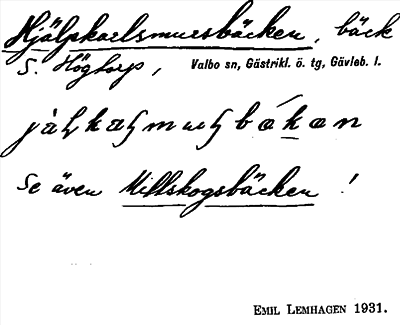 Hjälpkarlsmursbäcken, bäck
S. Högtorp, Valbo sn, Gästrikl. ö. tg, Gävleb. l.
Se även Millskogsbäcken !
EMIL LEMHAGEN 1931.